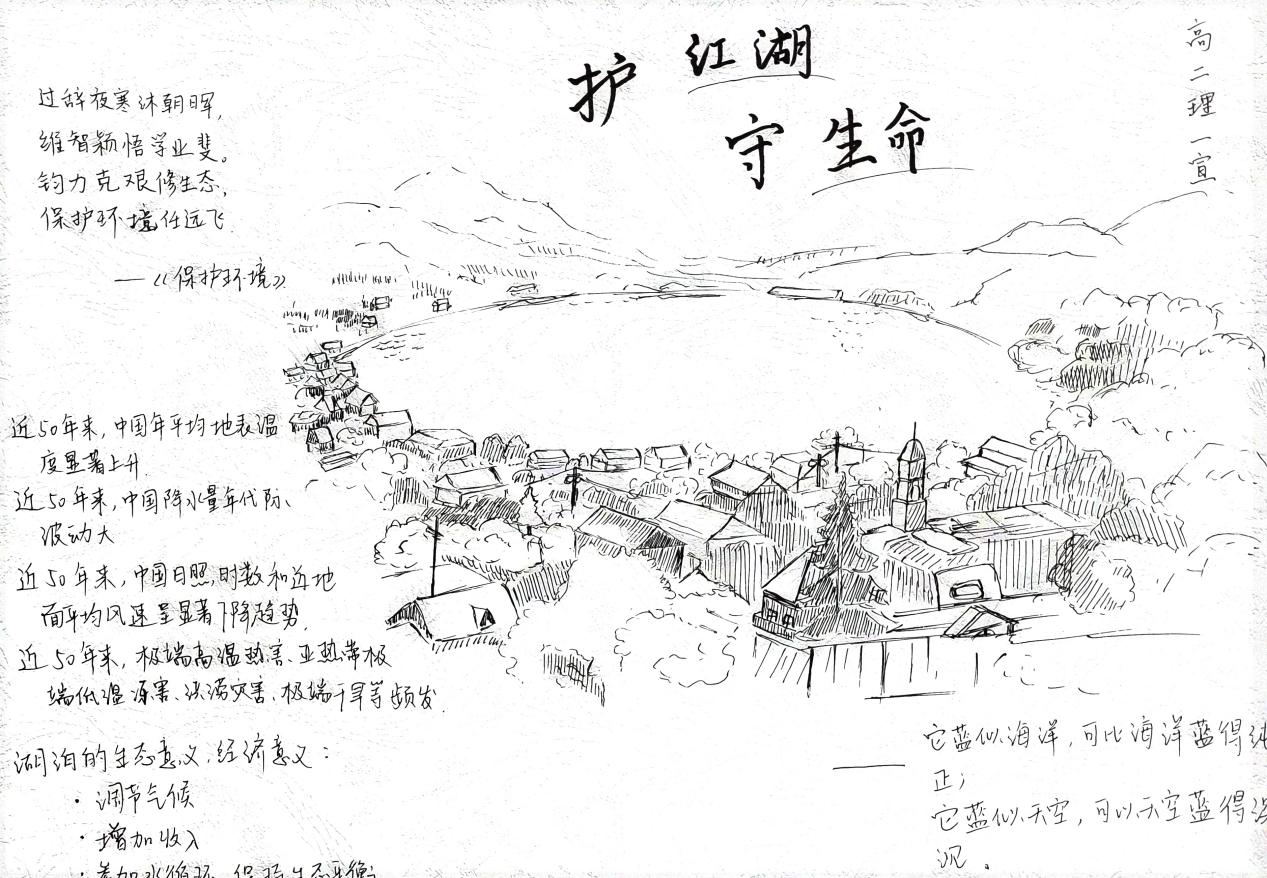 护江湖
守生命
高二理一宣
过辞夜寒沐朝晖,
维智颖悟学业斐。
钧力克艰修生态,
保护环境任远飞
——《保护环境》
近50年来,中国年平均地表温
度显著上升.
近50年来,中国降水量年代际、
波动大
近50年来,中国日照时数和近地
面平均风速呈显著下降趋势.
近50年来,极端高温热害、亚热带极
端低温冻害、洪涝灾害、极端干旱等频发.
湖泊的生态意义、经济意义:
·调节气候
·增加收入
·参加水循环 保持生态平衡
它蓝似海洋,可比海洋蓝得纯
正;
它蓝似天空,可以天空蓝得深
沉。